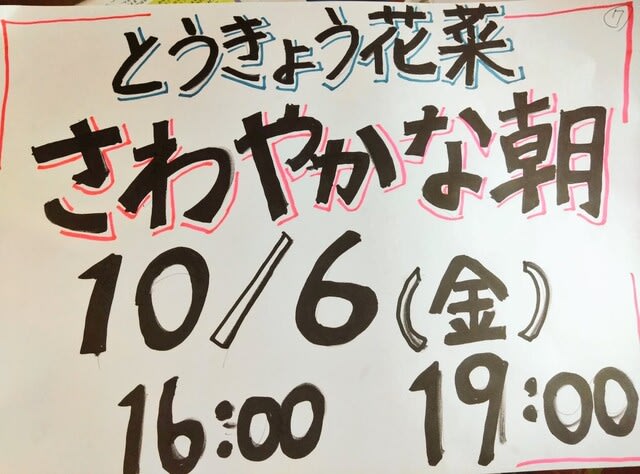 ⑦
とうきょう花菜
さわやかな朝
10/6(金)
16:00 19:00